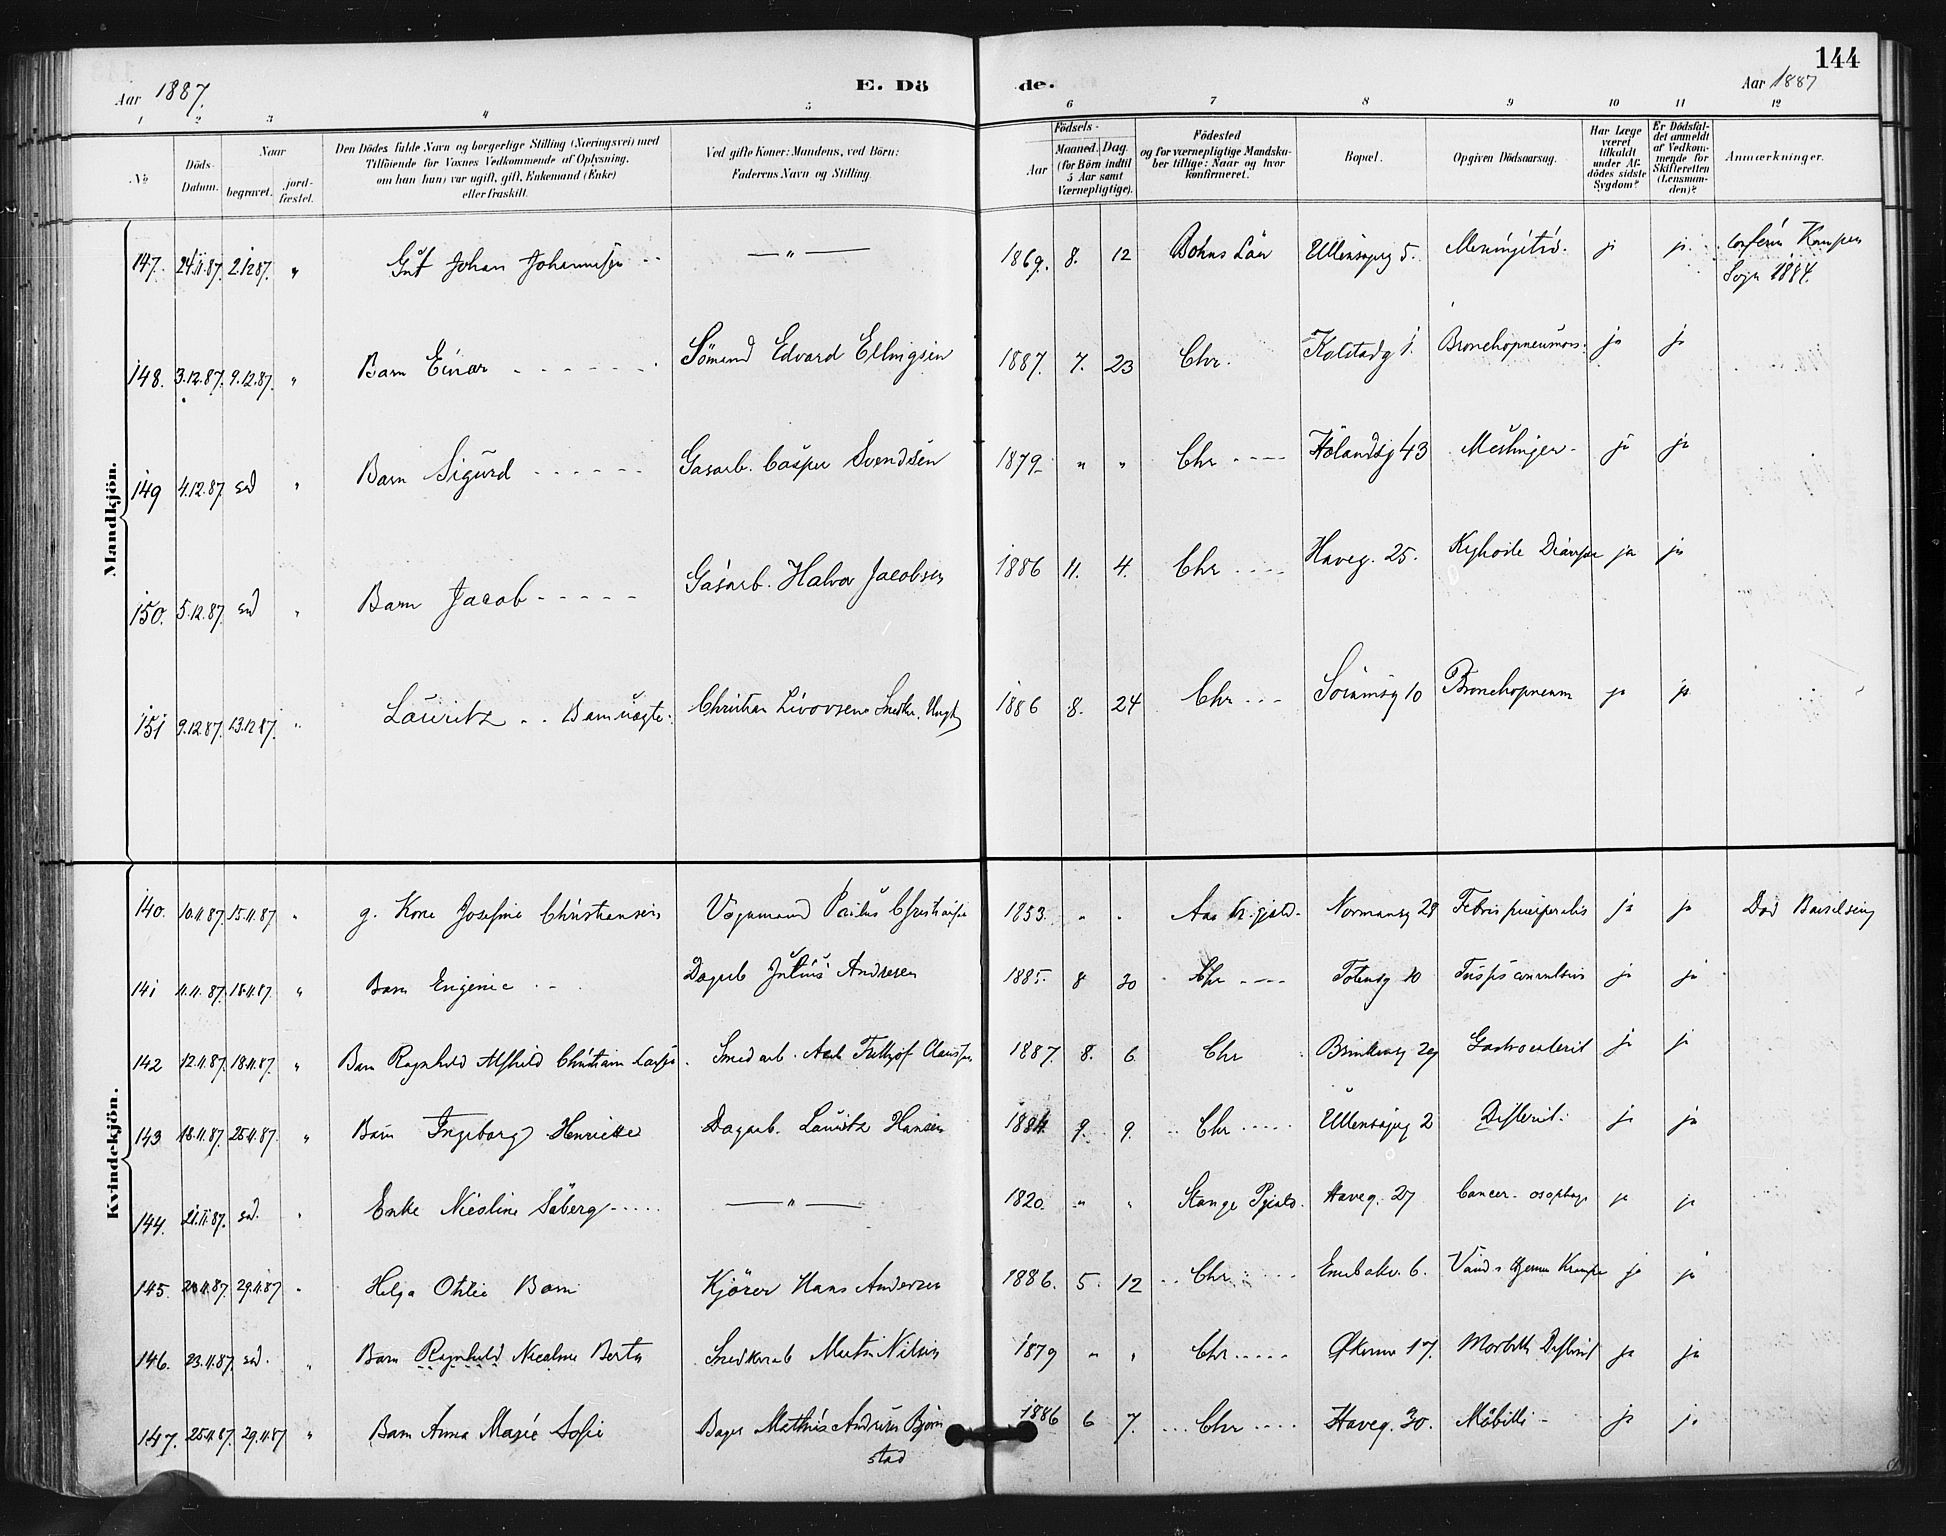 144
Aar 1887. E. Dö de. Aar 1887
1 2 3 4 5 6 7 8 9 10 11 12
No
Döds-Datum.
Naar begravet. jordfæstet.
Den Dödes fulde Navn og borgerlige Stilling (Næringsvei) med
Tilföiende for Voxnes Vedkommende af Oplysning,
om han (hun) var ugift, gift, Enkemand (Enke)
eller fraskilt.
Ved gifte Koner: Mandens, ved Börn:
Faderens Navn og Stilling.
Födsels-
Aar Maaned. Dag
(for Börn indtil
5 Aar samt
Værnepligtige).
Födested
og for værnepligtige Mandska-
ber tillige: Naar og hvor
konfirmeret.
Bopæl.
Opgiven Dödsaarsag.
Har Læge
været
tilkaldt
under Af-
dödes sidste
Sygdom?
Er Dödsfal-
det anmeldt
af Vedkom-
mende for
Skifteretten
(Lensman-
den)?
Anmærkninger.
Mandkjön.
147. 24.11.87. 2.12.87. " Johan Johannesen — " — 1869. 8. 12 Bohus Län Ullensagerg 5. Meningitis. ja ja. Kampen
Sogn 1884.
148. 3.12.87. 9.12.87. " Barn Einar Sömand Edvard Ellingsen 1887. 7. 23 Chr. Kolstadg 1. Bronchopneumoni. ja ja
149 4.12.87. sd " Barn Sigurd Gasarb. Casper Svendsen 1879 " " Chr Hølandsg 43 Meslinger ja ja
150. 5.12.87. sd " Barn Jacob Gasarb. Halvor Jacobsen 1886 11. 4. Chr Haveg. 25. ja ja
151 9.12.87. 13.12.87. " Lauritz Christian Snedker 1886 8. 24 Chr 10 Bronchopneum ja ja
Kvindekjön.
140. 10.11.87. 15.11.87. " g. Kone Josefine Christiansen Vognmand 1853. " " Normansg 28 Febris puerperalis ja ja Død Barselseng
141 11.11.87. 18.11.87 " Barn Eugenie Dagarb Julius Andresen 1885. 8 30 Chr Totensg 10 Tussis convulsiva ja ja
142 12.11.87. 18.11.87. " Barn Ragnhild Alfhild Smed 1887. 8. 6 Chr Brinken 29 Gastroenterit ja ja
143 18.11.87. 25.11.87. " Barn Ingeborg Henriette Dagarb. Lauritz Hansen 1884. 9. 9. Chr Ullensagerg 2 Difterit. ja ja
144. 21.11.87. sd. " Enke Nicoline Søberg — " — 1820. " " Stange Pgjæld. Haveg. 27 Cancer ja ja
145. 29.11.87 " Helga Otilie Barn Kjörer Hans Andersen 1886. 5. 12 Chr Enebakv. 6. ja ja
146. 23.11.87. sd. " Barn Ragnhild Nicoline Berta Snedkerarb Martin Nilsen 1879 " " Chr Økernv 17. ja ja
147. 25.11.87. 29.11.87 " Barn Anna Marie Sofie Bager Mathias Andersen Bjørn
stad 1886 6 7. Chr Haveg. 30. ja ja